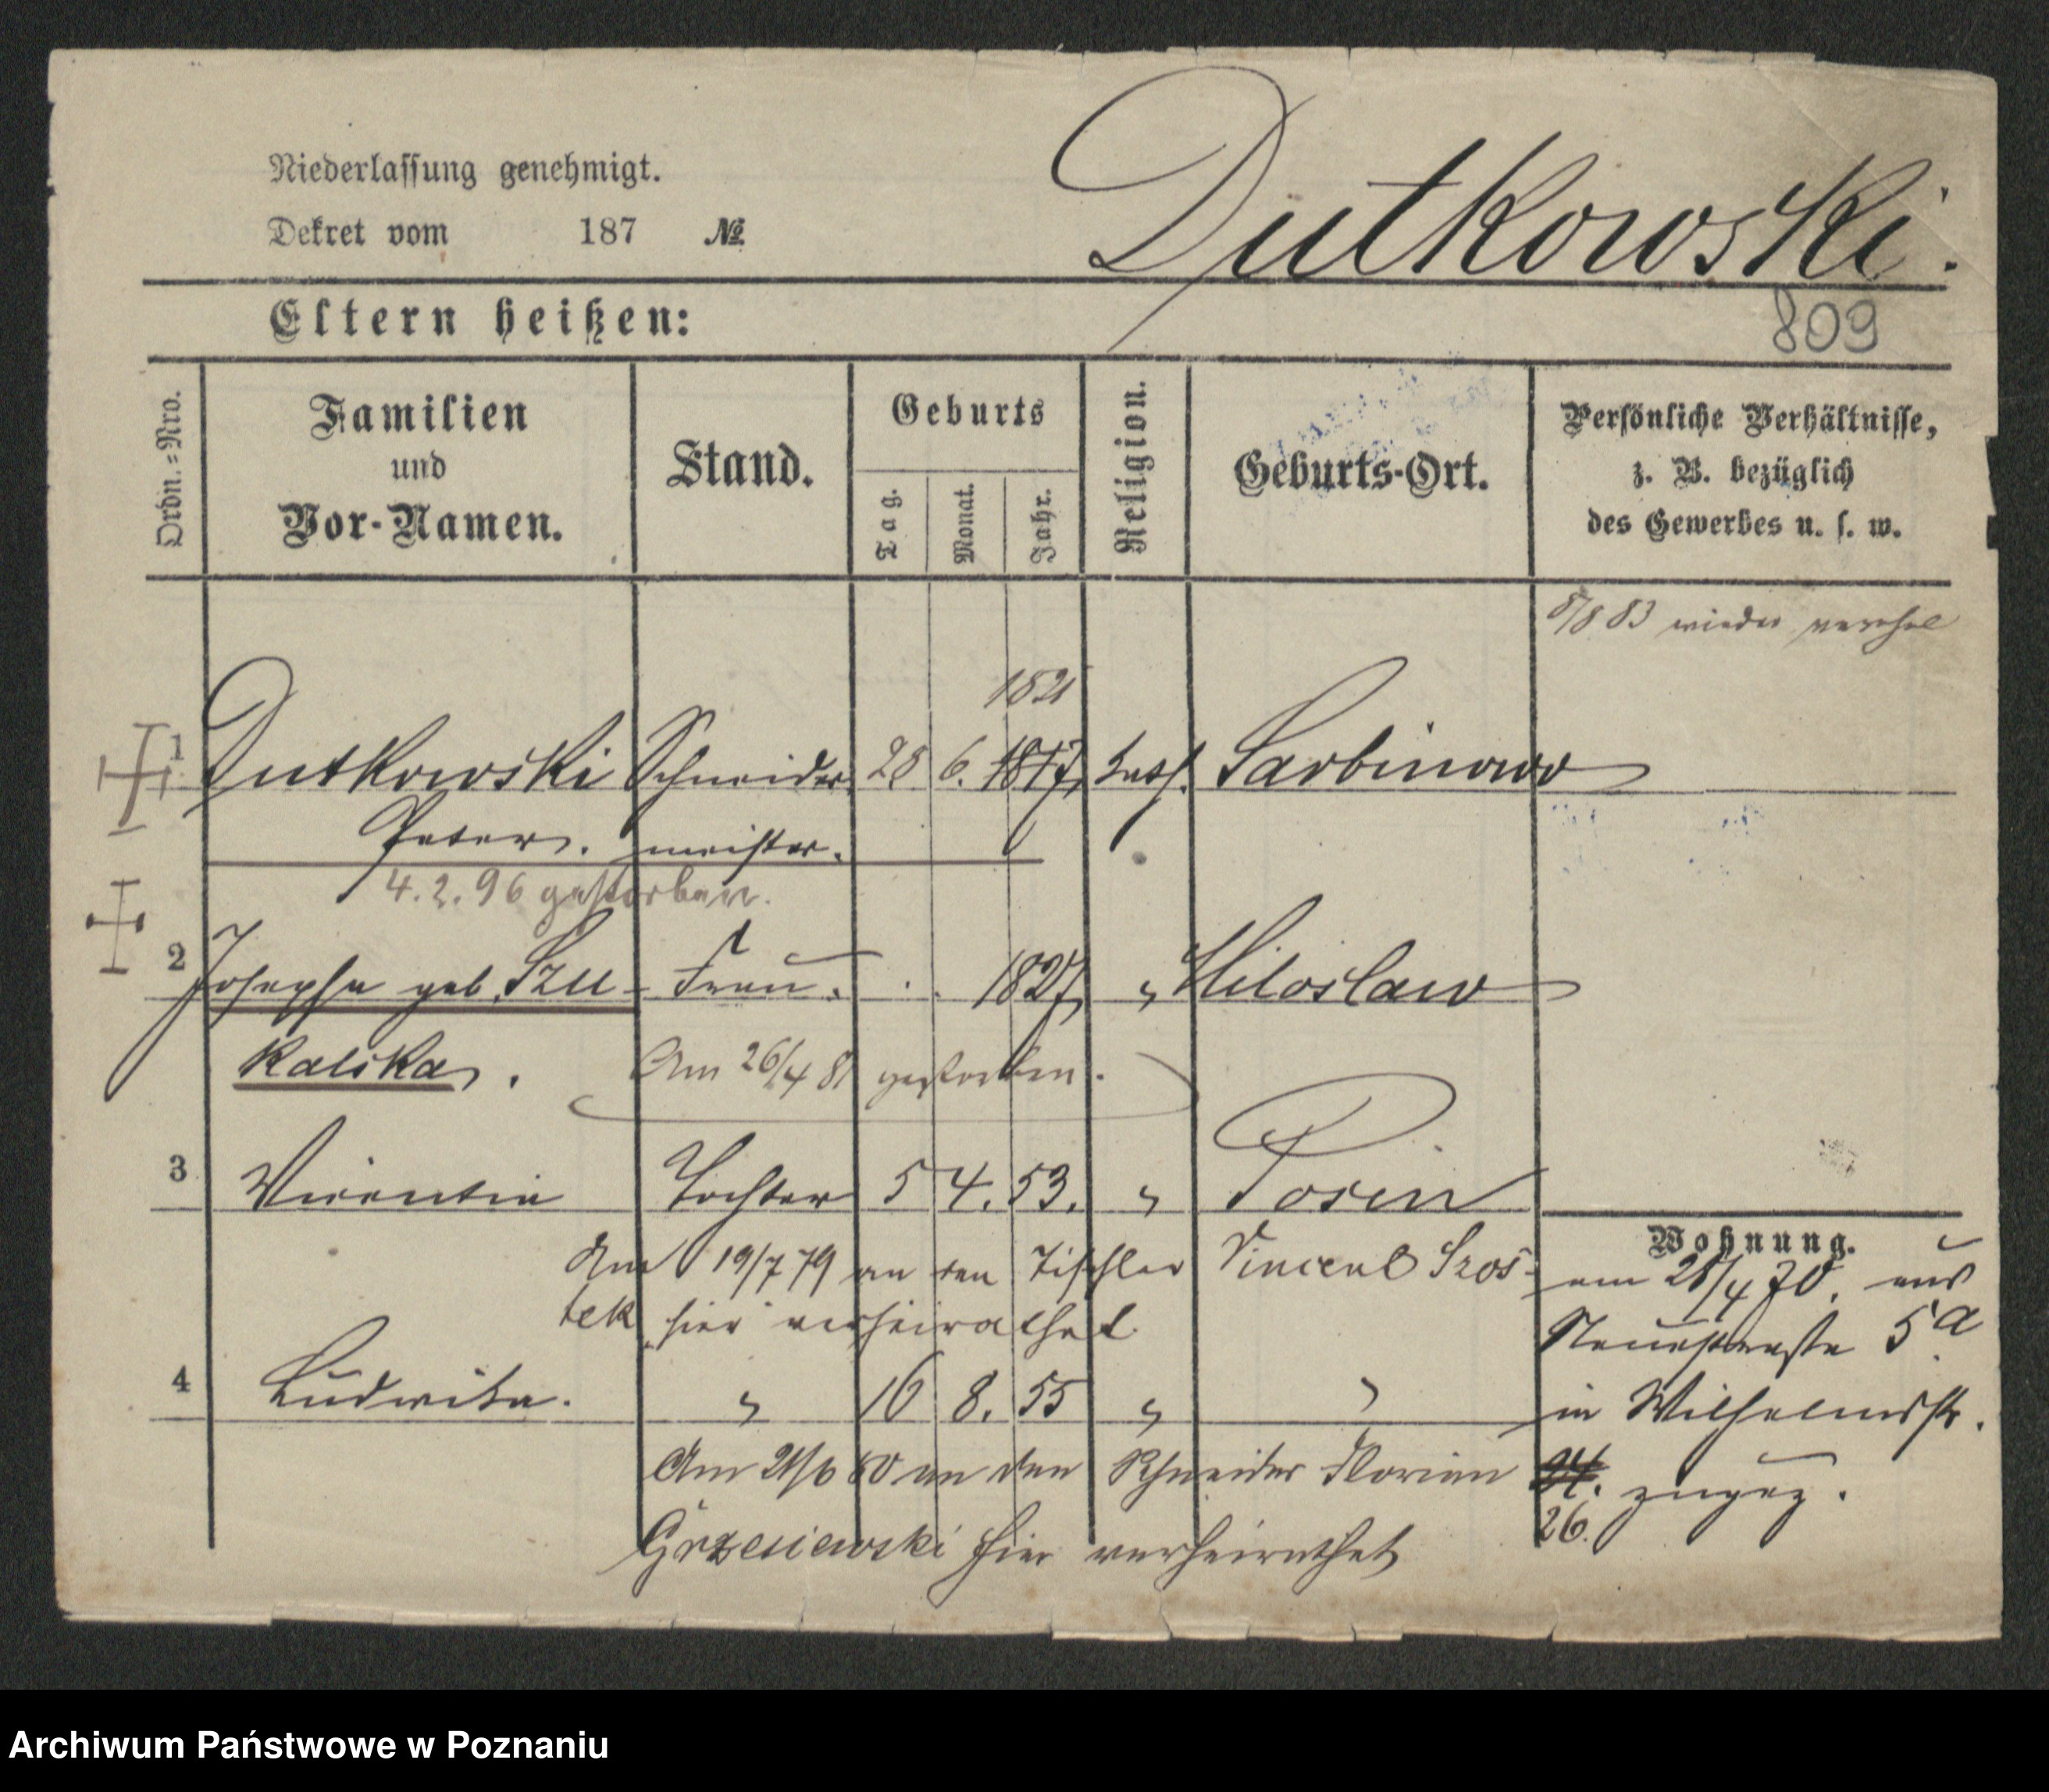 Niederlassung genehmigt.
Dekret vom 187 No.
Dutkowski.
809
Eltern heißen:
Ordn.=Nro.
Familien und Vor-Namen.
Stand.
Geburts
Tag. Monat. Jahr.
Religion.
Geburts-Ort.
Persönliche Verhältnisse,
z. B. bezüglich
des Gewerbes u. s. w.
8/8 83 wieder verehel
1821
1 Dutkowski Schneider 28 6. 1817, kath. Sarbinowo
Peter. meister.
4. 2. 96 gestorben.
2 Josepha geb. Szu- Frau. 1827 " Miloslaw
kalska.
Am 26/4 81 gestorben.
3 Vicentia Tochter 5 4. 53. " Posen
Am 19/7 79 an den Tischler Vincent Szos-
tek hier verheirathet.
4 Ludwika. " 16 8. 55 " "
Am 21/6 80 an den Schneider Florian
Grzesiewski hier verheirathet
Wohnung.
am 28/4 70. aus
Neuestraße 5a
in Wilhelmsstr.
24. zugez.
26.
Archiwum Państwowe w Poznaniu